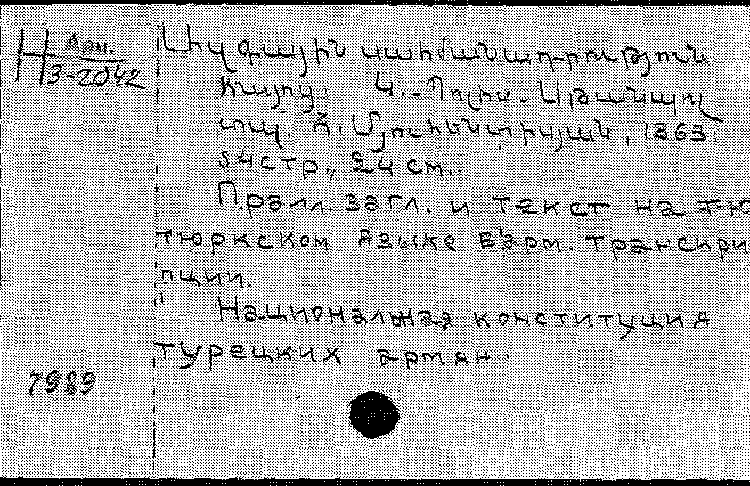 Н Арм.
3-2042
Ազգային սահմանադրութիւն
հայոց. Կ.-Պոլիս.
տպ. Յ. Միւհէնտիսյան, 1863.
54 стр., 24 см.
Парал. загл. и текст на тю
тюркском языке в арм. транскри
пции.
Национальная конституция
турецких армян
7989